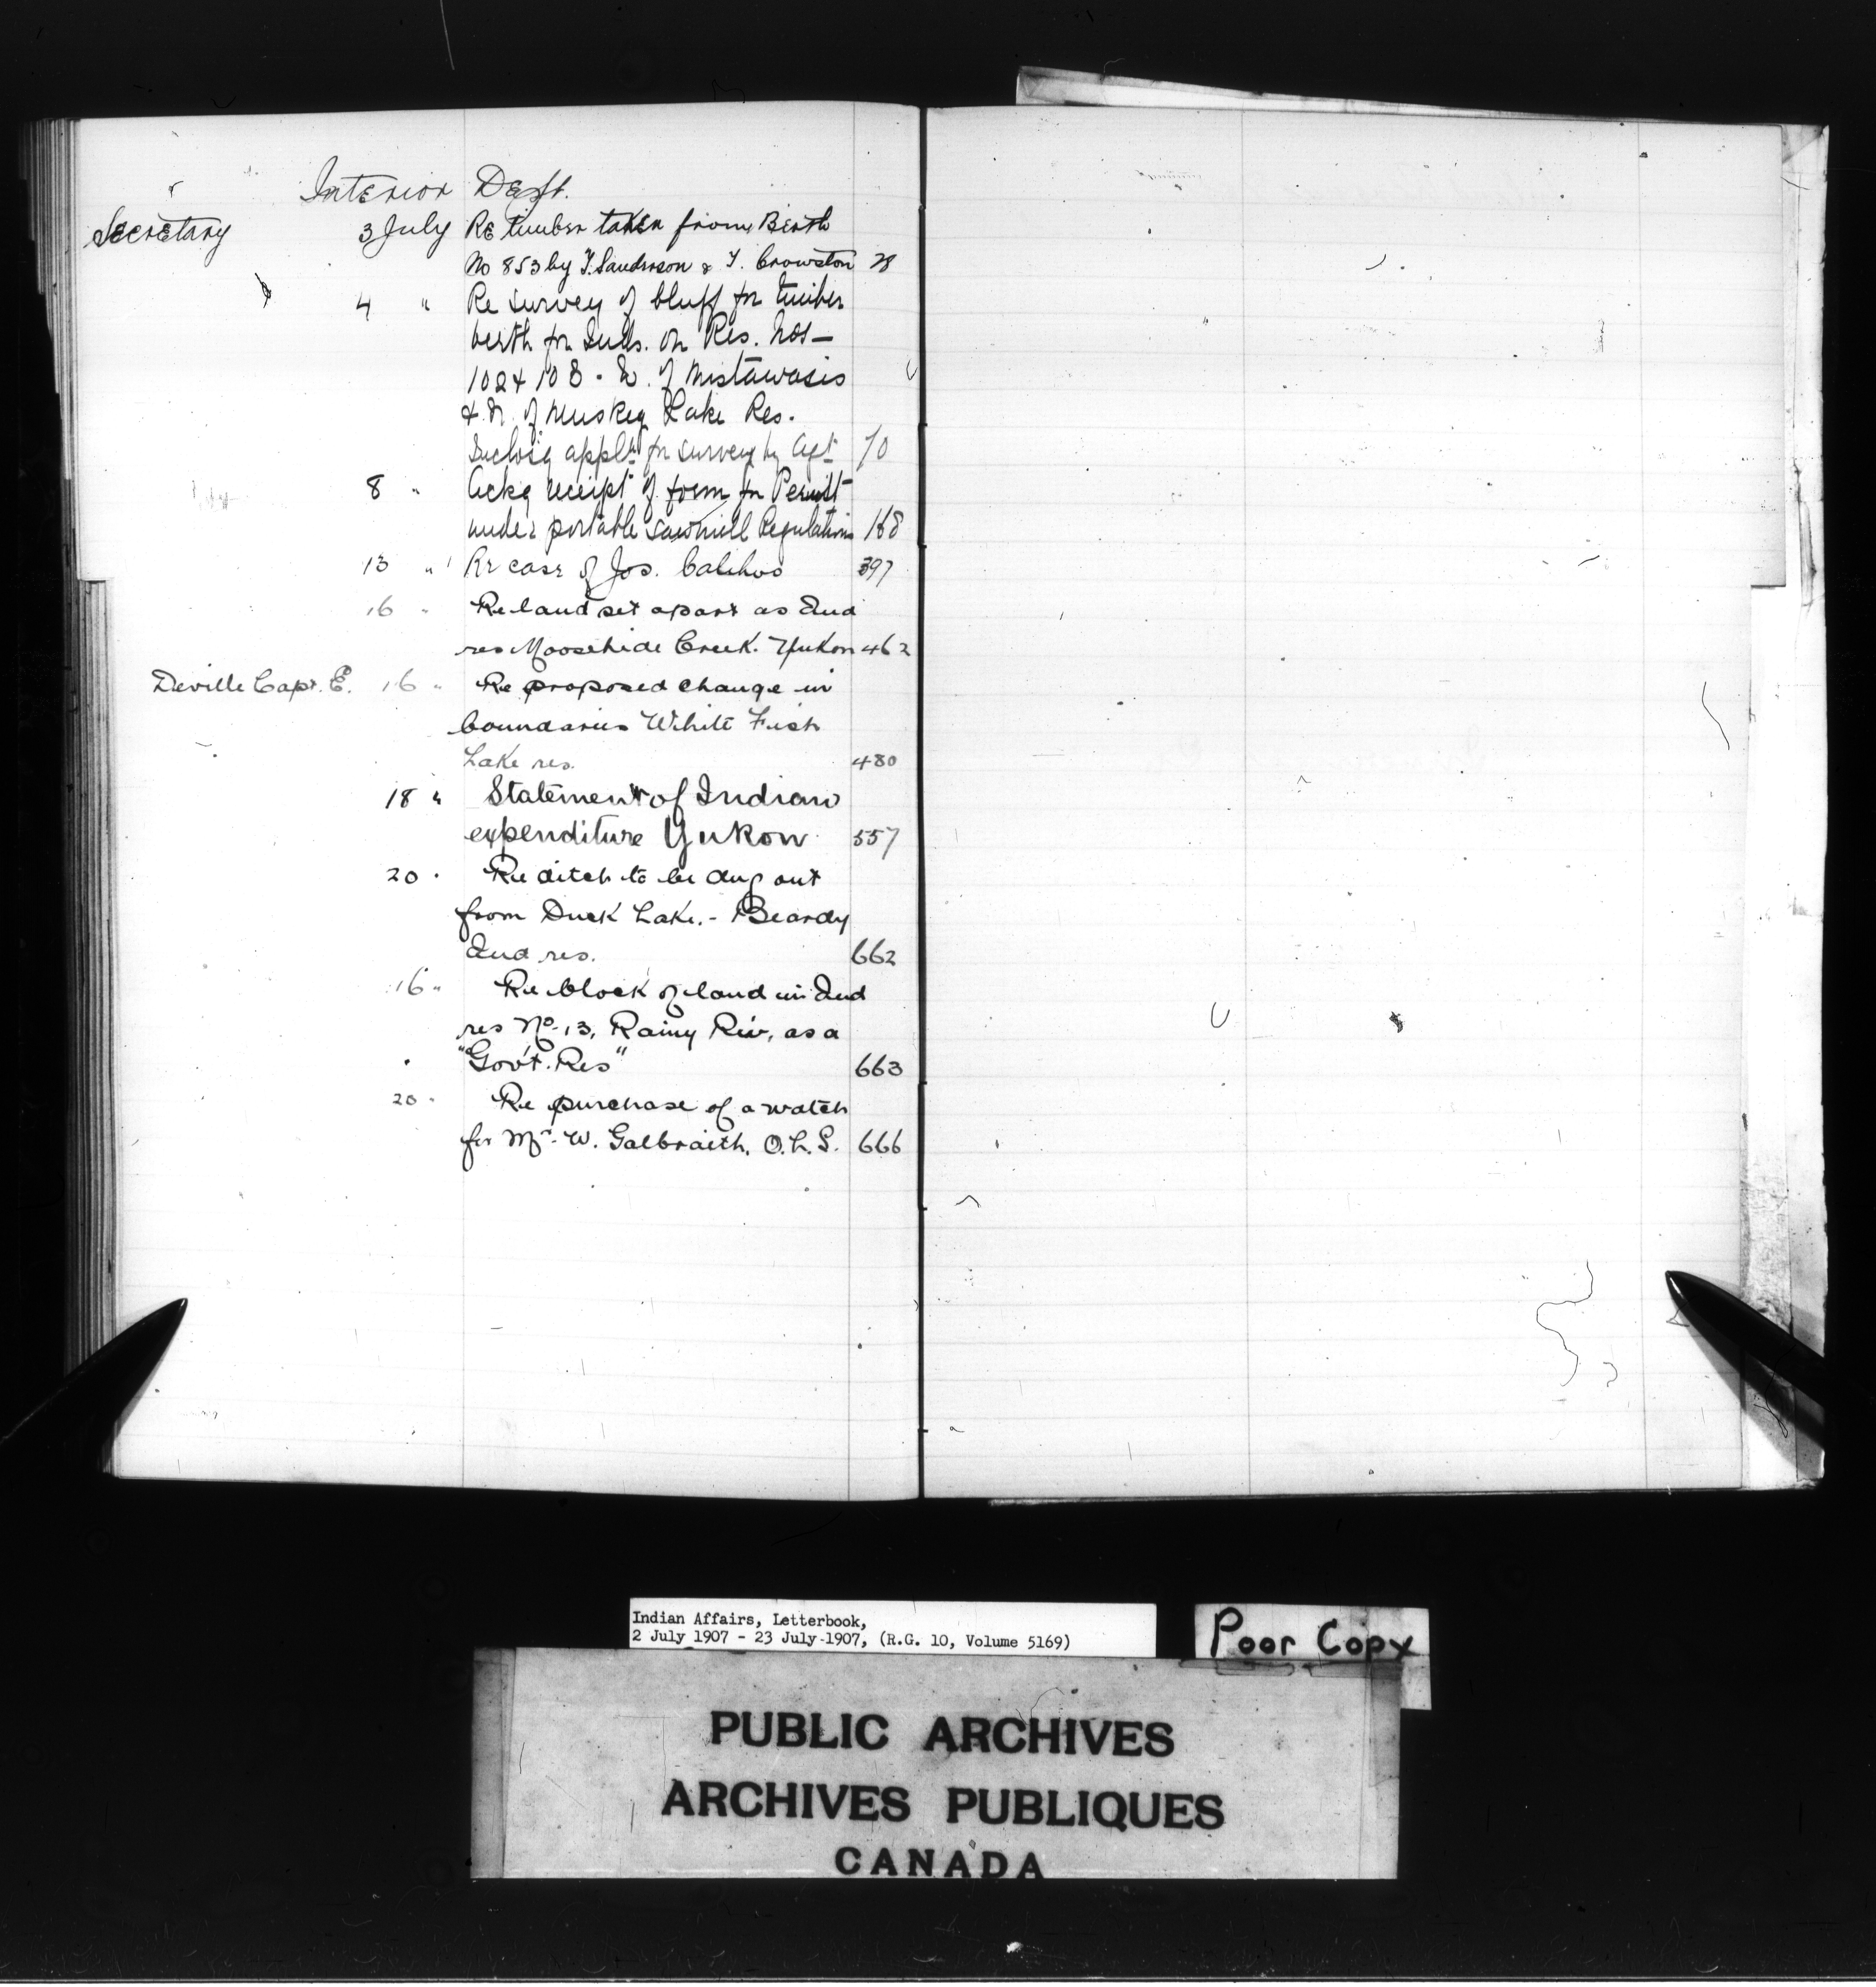 Interior Dept.
Secretary 3 July Re timber taken from Berth
No 853 by T. Sanderson & T. Crowston 28
4 " Re survey of bluff for timber
berth for Inds. on Res. Nos—
102 & 103 - W. of Mistawasis
& N. of Muskeg Lake Res.
Inclosig applt for survey by Agt 70
8 " Ackg receipt of form for Permit
under portable sawmill Regulations 168
13 " Re case of Jos. 397
16 " Re land set apart as Ind
res Moosehide Creek. Yukon 462
Deville Capt. E. 16 " Re proposed change in
boundaries White Fish
Lake res. 480
18 " Statement of Indian
expenditure Yukon 557
20 " Re ditch to be dug out
from Duck Lake. - Beardy
Ind res. 662
16 " Re block of land in Ind
res No. 13, Rainy Riv, as a
"Gov't. Res" 663
20 " Re purchase of a watch
for Mr. W. Galbraith, O.L.S. 666
Indian Affairs, Letterbook,
2 July 1907 - 23 July 1907, (R.G. 10, Volume 5169)
Poor Copy
PUBLIC ARCHIVES
ARCHIVES PUBLIQUES
CANADA